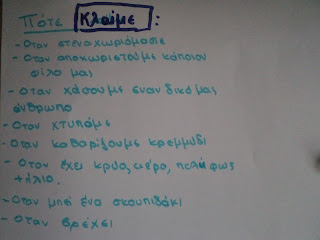 Πότε Κλαίμε :
- Όταν στεναχωριόμαστε
- Όταν αποχωριστούμε κάποιον
φίλο μας
- Όταν χάσουμε έναν δικό μας
άνθρωπο
- Όταν χτυπάμε
- Όταν καθαρίζουμε κρεμμύδι
- Όταν έχει κρύο, αέρα, πολύ φως
+ ήλιο.
- Όταν μπεί ένα σκουπιδάκι
- Όταν βρέχει